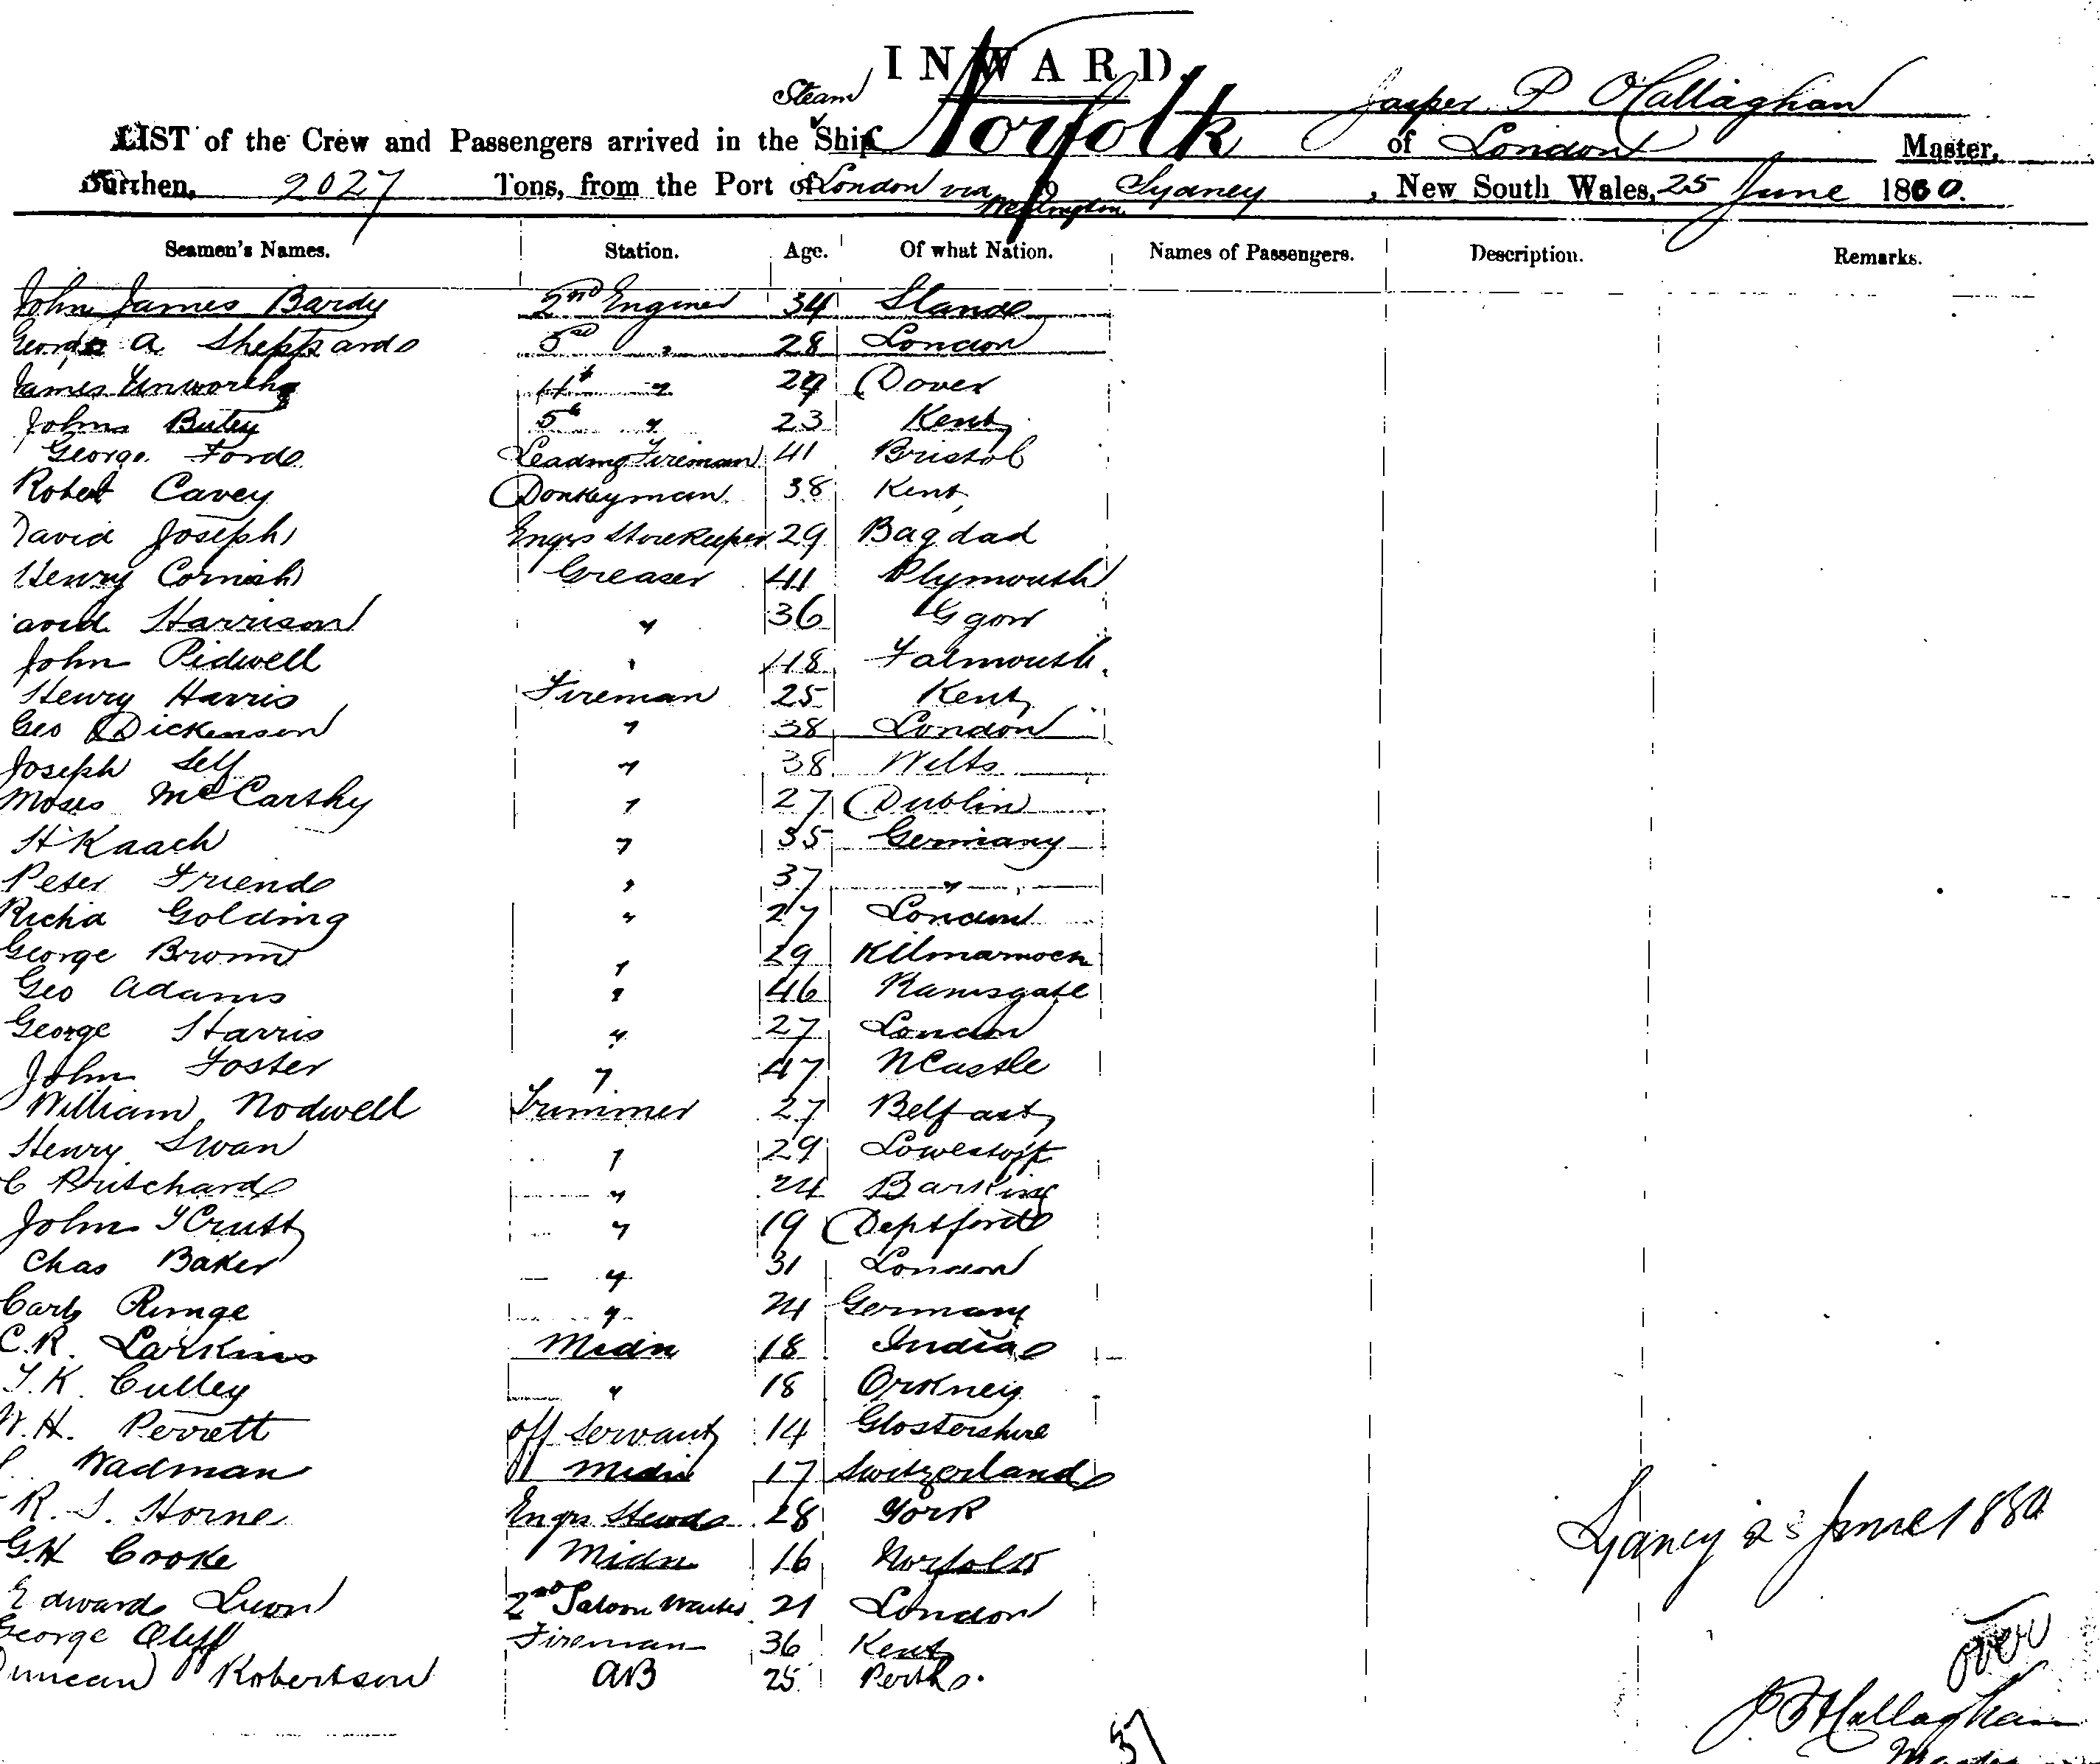 INWARD.
Steam
Jasper P O'Callaghan
LIST of the Crew and Passengers arrived in the Ship Norfolk of London Master,
Burthen, 2027 Tons, from the Port of London via Wellington to Sydney, New South Wales, 25 June 1880.
Seamen's Names. Station. Age. Of what Nation. Names of Passengers. Description. Remarks.
John James Bardy 2nd Engineer 34
George A Sheppard 3rd " 28 London
James Unworth 4th " 29 Dover
John 5th " 23 Kent
George Ford Leading Fireman 41 Bristol
Robert Cavey Donkeyman 38 Kent
David Joseph Engrs Storekeeper 29 Bagdad
Henry Cornish Greaser 41 Plymouth
avid Harrison " 36 Ggow
John Pidwell " 48 Falmouth
Henry Harris Fireman 25 Kent
Geo Dickenson " 38 London
Joseph Self " 38 Wilts
Moses McCarthy " 27 Dublin
H Kaach " 35 Germany
Peter Friend " 37 "
Richd Golding " 27 London
George Brown " 29 Kilmarnock
Geo Adams " 46 Ramsgate
George Harris " 27 London
John Foster " 47 NCastle
William Nodwell Trimmer 27 Belfast
Henry Swan " 29 Lowestoft
C Pritchard " 24 Barking
John T Crutt " 19 Deptford
Chas Baker " 31 London
Carl Runge " 24 Germany
C.R. Larkins Midn 18 India
T.K. Culley " 18 Orkney
W.H. Perrett Off Servant 14 Glostershire
Wadman Midn 17 Switzerland
R. S. Horne Engrs Steward 28 York
G.H Cooke Midn 16 Norfolk
Edward Lyon 2nd Saloon Waiter 21 London
George Cliff Fireman 36 Kent
Duncan Robertson AB 25 Perth
Sydney 25 June 1880
over
J P O'Callaghan
Master
37